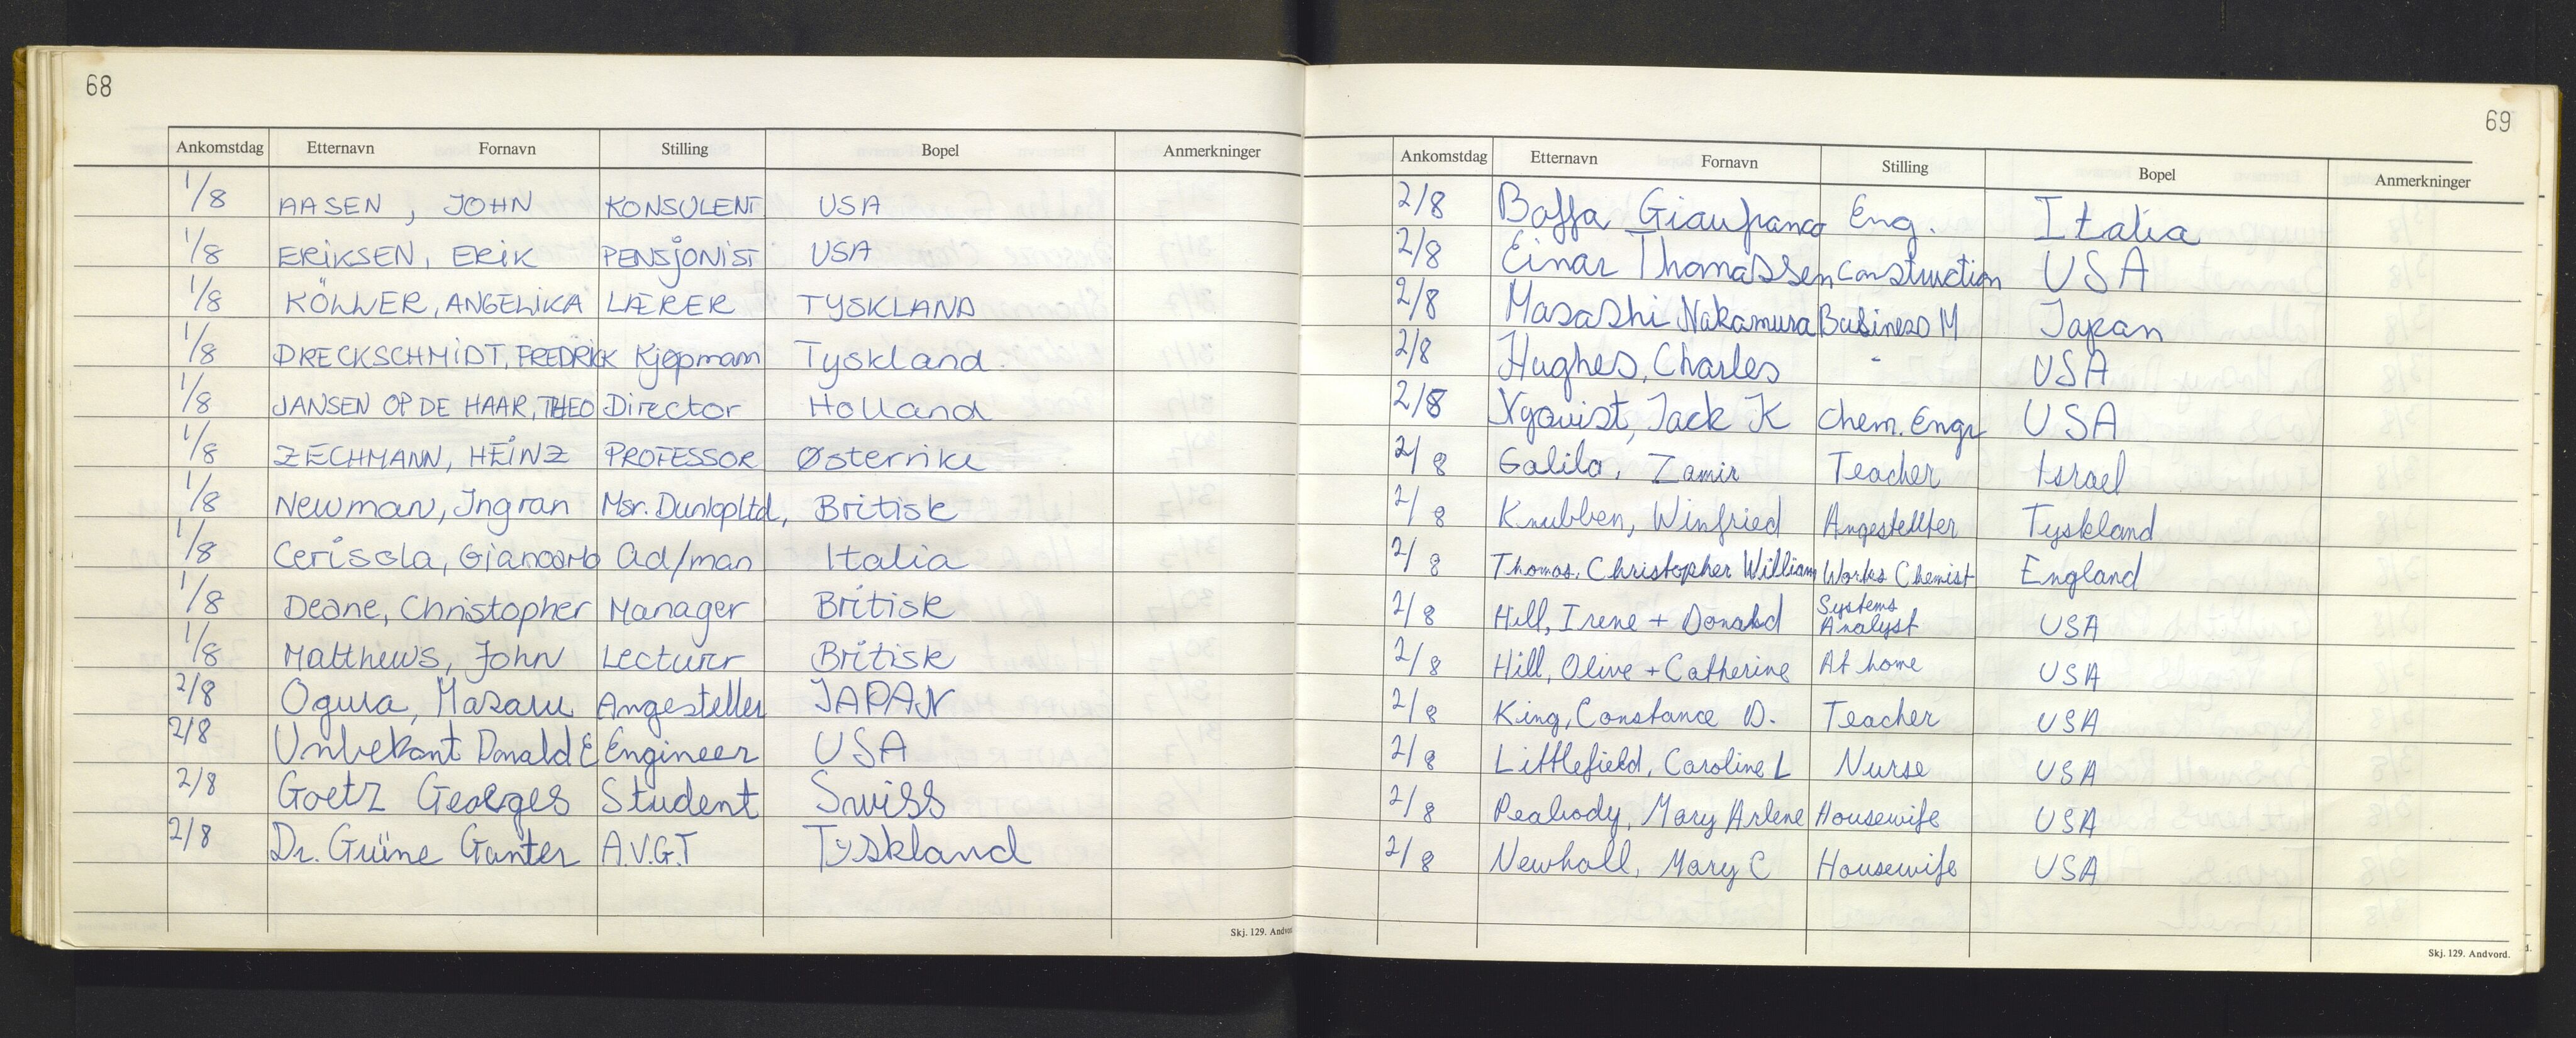 68
Ankomstdag Etternavn Fornavn Stilling Bopel Anmerkninger
1/8 AASEN, JOHN KONSULENT USA
1/8 ERIKSEN, ERIK PENSJONIST USA
1/8 KÖLLER, ANGELIKA LÆRER TYSKLAND
1/8 DRECKSCHMIDT, FREDRIK Kjøpmann Tyskland
1/8 JANSEN OP DE HAAR, THEO Director Holland
1/8 ZECHMANN, HEINZ PROFESSOR Østerrike
1/8 Newman, Ingran Msr. Dunlopltd, Britisk
1/8 Cerisola, Giancarlo ad/man Italia
1/8 Deane, Christopher Manager Britisk
1/8 Matthews, John Lecturer Britisk
2/8 Ogura, Masaru Angesteller JAPAN
2/8 Unbekant Donald E Engineer USA
2/8 Goetz Georges Student Swiss
2/8 Dr. Grüne Gunter A.V.G.T Tyskland
Skj. 129. Andvor
69
Ankomstdag Etternavn Fornavn Stilling Bopel Anmerkninger
2/8 Boffa Gianfranco Eng. Italia
2/8 Einar Thomassen Construction USA
2/8 Masashi Nakamura Business M Japan
2/8 Hughes, Charles - USA
2/8 Nyquist, Jack K Chem. Engr USA
2/8 Galila, Zamir Teacher Israel
2/8 Knubben, Winfried Angestellter Tyskland
2/8 Thomas, Christopher William Works Chemist England
2/8 Hill, Irene + Donald Systems Analyst USA
2/8 Hill, Olive + Catherine At home USA
2/8 King, Constance D. Teacher USA
2/8 Littlefield, Caroline L Nurse USA
2/8 Peabody, Mary Arlene Housewife USA
2/8 Newhall, Mary C Housewife USA
Skj. 129. Andvord.